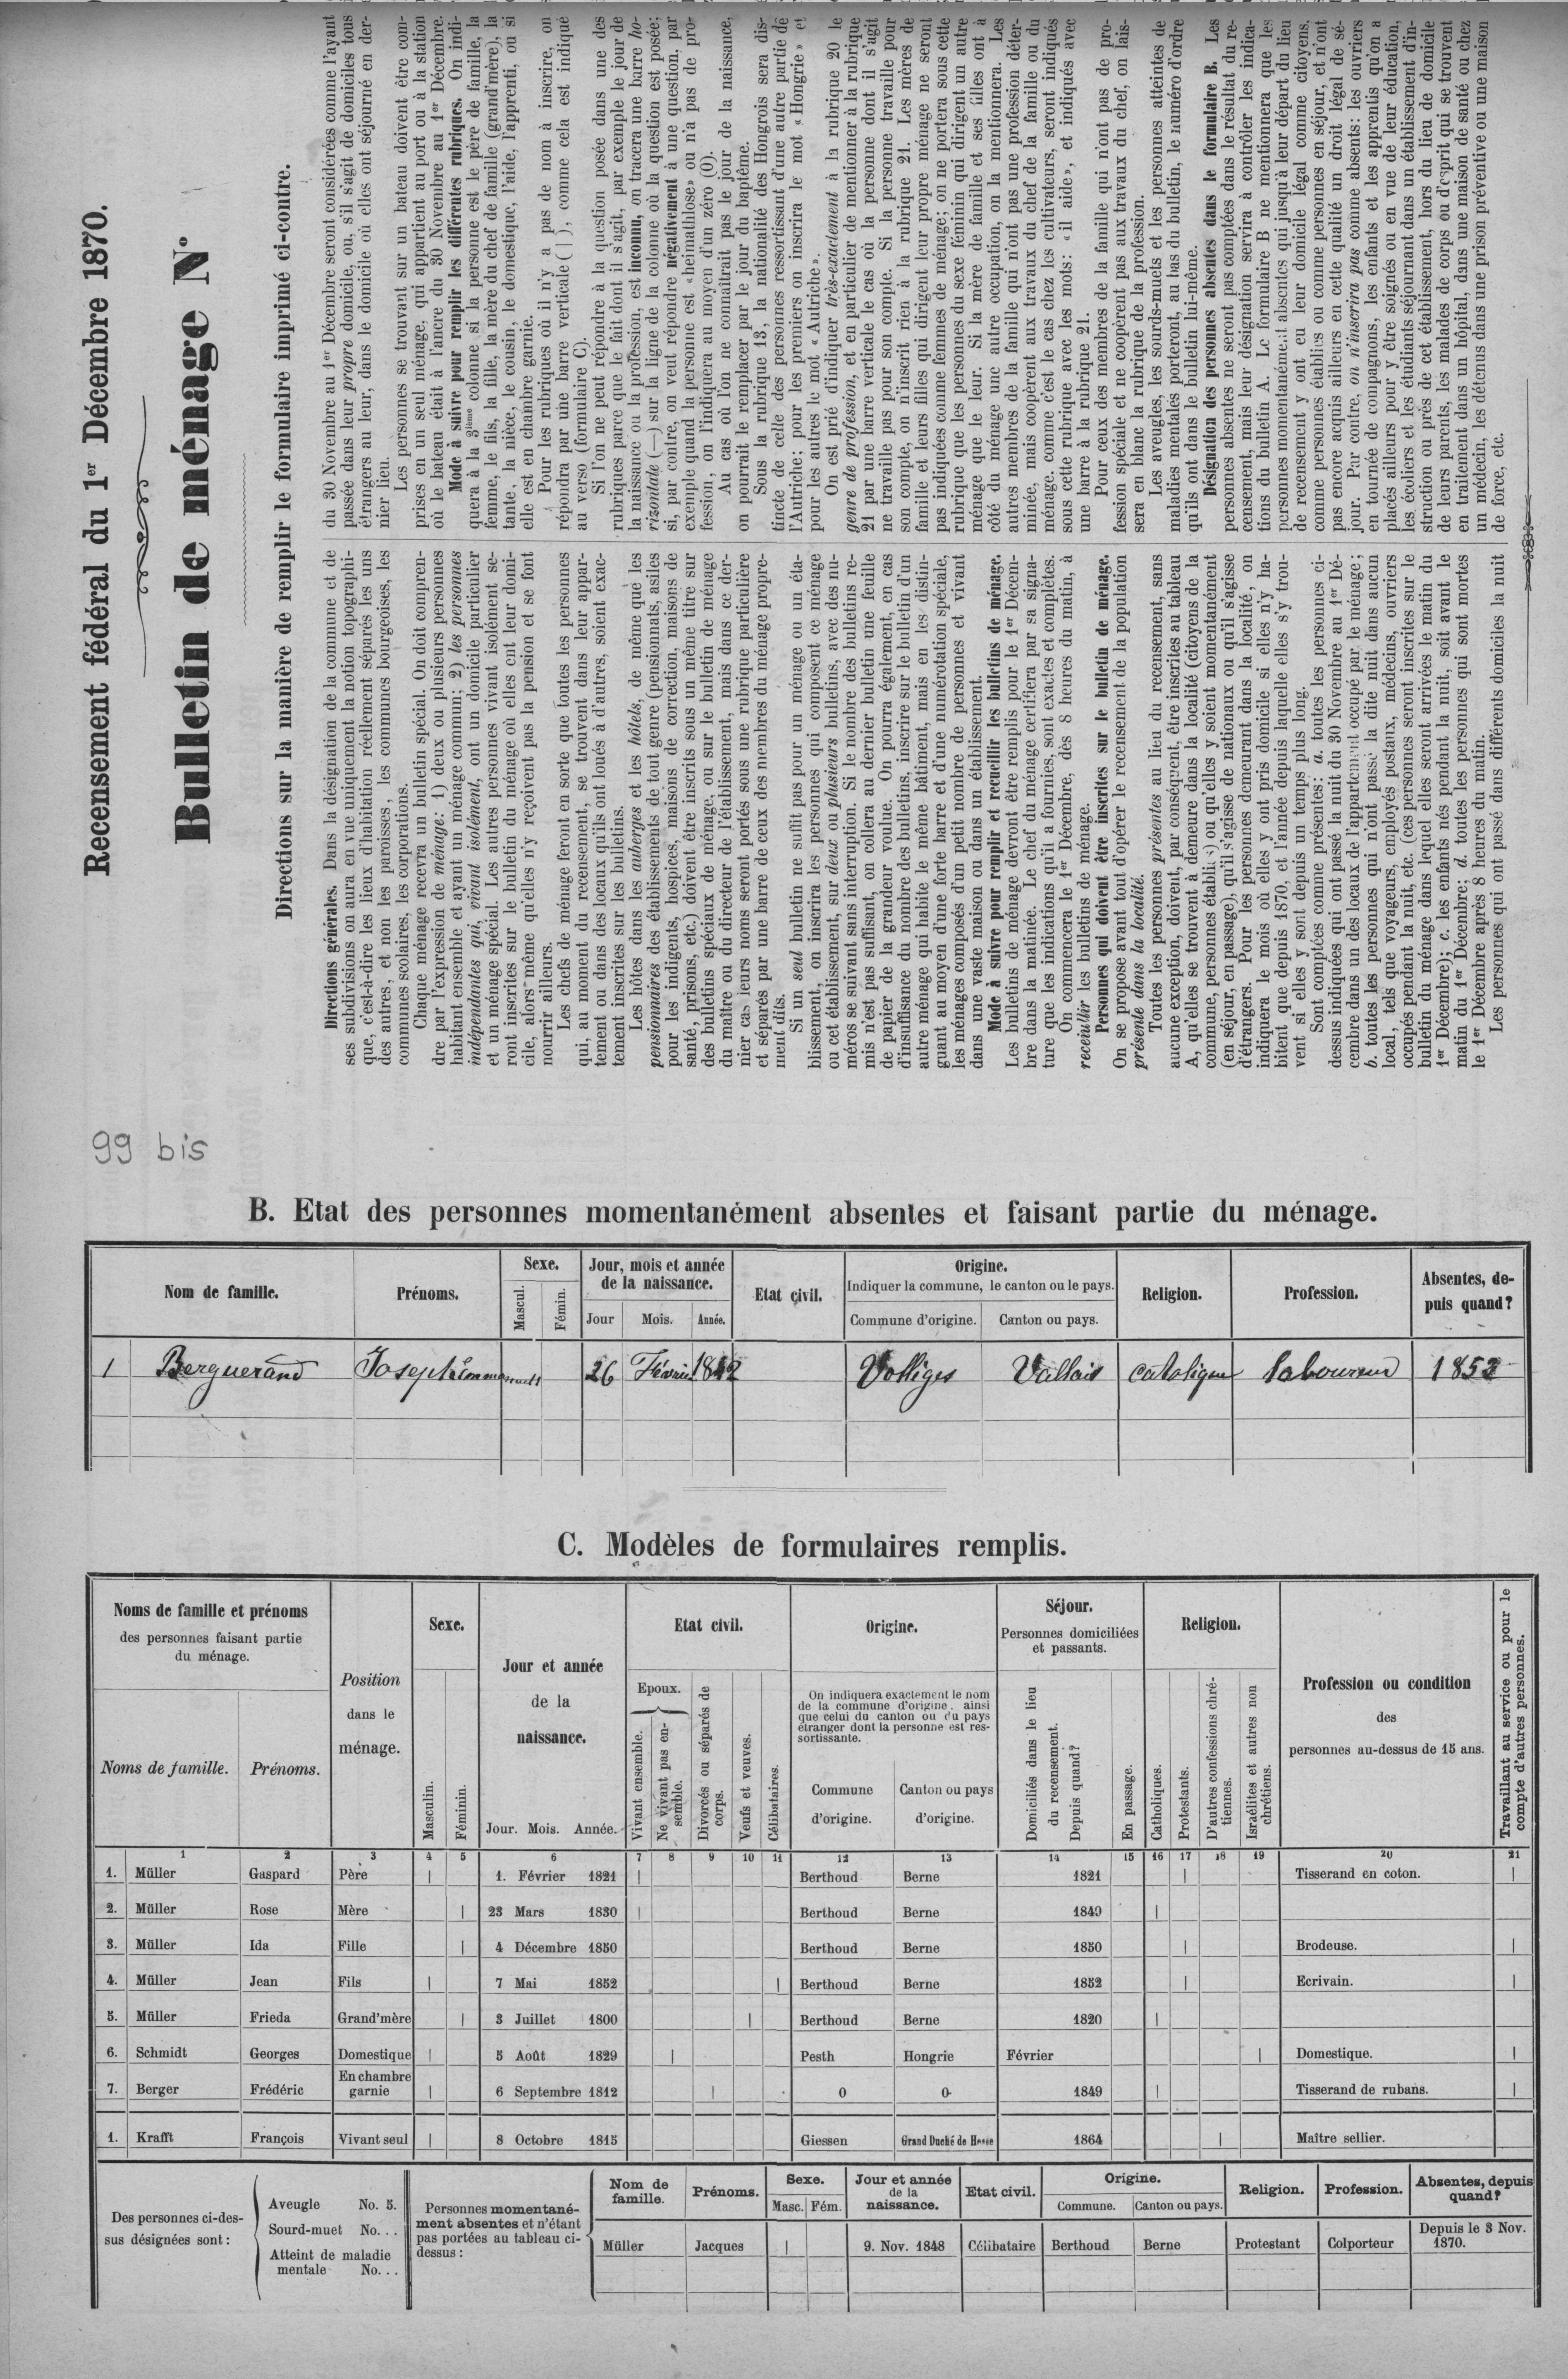 Recensement fédéral du 1er Décembre 1870.
Bulletin de ménage N°
Directions sur la manière de remplir le formulaire imprimé ci-contre.
Directions générales. Dans la désignation de la commune et de
ses subdivisions on aura en vue uniquement la notion topographi-
que, c'est-à-dire les lieux d'habitation réellement séparés les uns
des autres, et non les paroisses, les communes bourgeoises, les
communes scolaires, les corporations.
Chaque ménage recevra un bulletin spécial. On doit compren-
dre par l'expression de ménage: 1) deux ou plusieurs personnes
habitant ensemble et ayant un ménage commun; 2) les personnes
indépendantes qui, vivant isolément, ont un domicile particulier
et un ménage spécial. Les autres personnes vivant isolément se-
ront inscrites sur le bulletin du ménage où elles ont leur domi-
cile, alors même qu'elles n'y reçoivent pas la pension et se font
nourrir ailleurs.
Les chefs de ménage feront en sorte que toutes les personnes
qui, au moment du recensement, se trouvent dans leur appar-
tement ou dans des locaux qu'ils ont loués à d'autres, soient exac-
tement inscrites sur les bulletins.
Les hôtes dans les auberges et les hôtels, de même que les
pensionnaires des établissements de tout genre (pensionnats, asiles
pour les indigents, hospices, maisons de correction, maisons de
santé, prisons, etc.) doivent être inscrits sous un même titre sur
des bulletins spéciaux de ménage, ou sur le bulletin de ménage
du maître ou du directeur de l'établissement, mais dans ce der-
nier cas leurs noms seront portés sous une rubrique particulière
et séparés par une barre de ceux des membres du ménage propre-
ment dits.
Si un seul bulletin ne suffit pas pour un ménage ou un éta-
blissement, on inscrira les personnes qui composent ce ménage
ou cet établissement, sur deux ou plusieurs bulletins, avec des nu-
méros se suivant sans interruption. Si le nombre des bulletins re-
mis n'est pas suffisant, on collera au dernier bulletin une feuille
de papier de la grandeur voulue. On pourra également, en cas
d'insuffisance du nombre des bulletins, inscrire sur le bulletin d'un
autre ménage qui habite le même bâtiment, mais en les distin-
guant au moyen d'une forte barre et d'une numérotation spéciale,
les ménages composés d'un petit nombre de personnes et vivant
dans une vaste maison ou dans un établissement.
Mode à suivre pour remplir et recueillir les bulletins de ménage.
Les bulletins de ménage devront être remplis pour le 1er Décem-
bre dans la matinée. Le chef du ménage certifiera par sa signa-
ture que les indications qu'il a fournies, sont exactes et complètes.
On commencera le 1er Décembre, dès 8 heures du matin, à
recueillir les bulletins de ménage.
Personnes qui doivent être inscrites sur le bulletin de ménage.
On se propose avant tout d'opérer le recensement de la population
présente dans la localité.
Toutes les personnes présentes au lieu du recensement, sans
aucune exception, doivent, par conséquent, être inscrites au tableau
A, qu'elles se trouvent à demeure dans la localité (citoyens de la
commune, personnes établies) ou qu'elles y soient momentanément
(en séjour, en passage), qu'il s'agisse de nationaux ou qu'il s'agisse
d'étrangers. Pour les personnes demeurant dans la localité, on
indiquera le mois où elles y ont pris domicile si elles n'y ha-
bitent que depuis 1870, et l'année depuis laquelle elles s'y trou-
vent si elles y sont depuis un temps plus long.
Sont comptées comme présentes: a. toutes les personnes ci-
dessus indiquées qui ont passé la nuit du 30 Novembre au 1er Dé-
cembre dans un des locaux de l'appartement occupé par le ménage;
b. toutes les personnes qui n'ont passé la dite nuit dans aucun
local, tels que voyageurs, employés postaux, médecins, ouvriers
occupés pendant la nuit, etc. (ces personnes seront inscrites sur le
bulletin du ménage dans lequel elles seront arrivées le matin du
1er Décembre); c. les enfants nés pendant la nuit, soit avant le
matin du 1er Décembre; d. toutes les personnes qui sont mortes
le 1er Décembre après 8 heures du matin.
Les personnes qui ont passé dans différents domiciles la nuit
du 30 Novembre au 1er Décembre seront considérées comme l'ayant
passée dans leur propre domicile, ou, s'il s'agit de domiciles tous
étrangers au leur, dans le domicile où elles ont séjourné en der-
nier lieu.
Les personnes se trouvant sur un bateau doivent être com-
prises en un seul ménage, qui appartient au port ou à la station
où le bateau était à l'ancre du 30 Novembre au 1er Décembre.
Mode à suivre pour remplir les différentes rubriques. On indi-
quera à la 3ième colonne si la personne est le père de famille, la
femme, le fils, la fille, la mère du chef de famille (grand'mère), la
tante, la nièce, le cousin, le domestique, l'aide, l'apprenti, ou si
elle est en chambre garnie.
Pour les rubriques où il n'y a pas de nom à inscrire, on
répondra par une barre verticale (|), comme cela est indiqué
au verso (formulaire C).
Si l'on ne peut répondre à la question posée dans une des
rubriques parce que le fait dont il s'agit, par exemple le jour de
la naissance ou la profession, est inconnu, on tracera une barre ho-
rizontale (—) sur la ligne de la colonne où la question est posée;
si, par contre, on veut répondre négativement à une question, par
exemple quand la personne est «heimathlose» ou n'a pas de pro-
fession, on l'indiquera au moyen d'un zéro (0).
Au cas où l'on ne connaîtrait pas le jour de la naissance,
on pourrait le remplacer par le jour du baptême.
Sous la rubrique 13, la nationalité des Hongrois sera dis-
tincte de celle des personnes ressortissant d'une autre partie de
l'Autriche; pour les premiers on inscrira le mot «Hongrie» et
pour les autres le mot «Autriche».
On est prié d'indiquer très-exactement à la rubrique 20 le
genre de profession, et en particulier de mentionner à la rubrique
21 par une barre verticale le cas où la personne dont il s'agit
ne travaille pas pour son compte. Si la personne travaille pour
son compte, on n'inscrit rien à la rubrique 21. Les mères de
famille et leurs filles qui dirigent leur propre ménage ne seront
pas indiquées comme femmes de ménage; on ne portera sous cette
rubrique que les personnes du sexe féminin qui dirigent un autre
ménage que le leur. Si la mère de famille et ses filles ont à
côté du ménage une autre occupation, on la mentionnera. Les
autres membres de la famille qui n'ont pas une profession déter-
minée, mais coopérent aux travaux du chef de la famille ou du
ménage, comme c'est le cas chez les cultivateurs, seront indiqués
sous cette rubrique avec les mots: «il aide», et indiqués avec
une barre à la rubrique 21.
Pour ceux des membres de la famille qui n'ont pas de pro-
fession spéciale et ne coopèrent pas aux travaux du chef, on lais-
sera en blanc la rubrique de la profession.
Les aveugles, les sourds-muets et les personnes atteintes de
maladies mentales porteront, au bas du bulletin, le numéro d'ordre
qu'ils ont dans le bulletin lui-même.
Désignation des personnes absentes dans le formulaire B. Les
personnes absentes ne seront pas comptées dans le résultat du re-
censement, mais leur désignation servira à contrôler les indica-
tions du bulletin A. Le formulaire B ne mentionnera que les
personnes momentanément absentes qui jusqu'à leur départ du lieu
de recensement y ont eu leur domicile légal comme citoyens,
comme personnes établies ou comme personnes en séjour, et n'ont
pas encore acquis ailleurs en cette qualité un droit légal de sé-
jour. Par contre, on n'inscrira pas comme absents: les ouvriers
en tournée de compagnons, les enfants et les apprentis qu'on a
placés ailleurs pour y être soignés ou en vue de leur éducation,
les écoliers et les étudiants séjournant dans un établissement d'in-
struction ou près de cet établissement, hors du lieu de domicile
de leurs parents, les malades de corps ou d'esprit qui se trouvent
en traitement dans un hôpital, dans une maison de santé ou chez
un médecin, les détenus dans une prison préventive ou une maison
de force, etc.
99 bis
B. Etat des personnes momentanément absentes et faisant partie du ménage.
Nom de famille. Prénoms. Sexe. Mascul. Fémin. Jour, mois et année de la naissance. Jour Mois. Année. Etat civil. Origine. Indiquer la commune, le canton ou le pays. Commune d'origine. Canton ou pays. Religion. Profession. Absentes, de-
puis quand?
1 Berguerand Joseph 26 Février 1842 Volliges Vallais catolique laboureur 1853
C. Modèles de formulaires remplis.
Noms de famille et prénoms
des personnes faisant partie
du ménage.
Noms de famille. Prénoms.
Position
dans le
ménage.
Sexe.
Masculin.
Féminin.
Jour et année
de la
naissance.
Jour. Mois. Année.
Etat civil.
Epoux.
Vivant ensemble.
Ne vivant pas en-
semble.
Divorcés ou séparés de
corps.
Veufs et veuves.
Célibataires.
Origine.
On indiquera exactement le nom
de la commune d'origine, ainsi
que celui du canton ou du pays
étranger dont la personne est res-
sortissante.
Commune
d'origine.
Canton ou pays
d'origine.
Séjour.
Personnes domiciliées
et passants.
Domiciliés dans le lieu
du recensement.
Depuis quand?
En passage.
Religion.
Catholiques.
Protestants.
D'autres confessions chré-
tiennes.
Israélites et autres non
chrétiens.
Profession ou condition
des
personnes au-dessus de 15 ans.
Travaillant au service ou pour le
compte d'autres personnes.
1 2 3 4 5 6 7 8 9 10 11 12 13 14 15 16 17 18 19 20 21
1. Müller Gaspard Père | 1. Février 1821 | Berthoud Berne 1821 | Tisserand en coton. |
2. Müller Rose Mère | 23 Mars 1830 | Berthoud Berne 1849 |
3. Müller Ida Fille | 4 Décembre 1850 Berthoud Berne 1850 | Brodeuse. |
4. Müller Jean Fils | 7 Mai 1852 | Berthoud Berne 1852 | Ecrivain. |
5. Müller Frieda Grand'mère | 3 Juillet 1800 | Berthoud Berne 1820 |
6. Schmidt Georges Domestique | 5 Août 1829 | Pesth Hongrie Février | Domestique. |
7. Berger Frédéric En chambre garnie | 6 Septembre 1812 | 0 0 1849 | Tisserand de rubans. |
1. Krafft François Vivant seul | 8 Octobre 1815 Giessen Grand Duché de Hesse 1864 | Maître sellier.
Des personnes ci-des-
sus désignées sont:
Aveugle No. 5.
Sourd-muet No. . .
Atteint de maladie
mentale No. . .
Personnes momentané-
ment absentes et n'étant
pas portées au tableau ci-
dessus:
Nom de
famille. Prénoms. Sexe. Masc. Fém. Jour et année
de la
naissance. Etat civil. Origine. Commune. Canton ou pays. Religion. Profession. Absentes, depuis
quand?
Müller Jacques | 9. Nov. 1848 Célibataire Berthoud Berne Protestant Colporteur Depuis le 3 Nov.
1870.